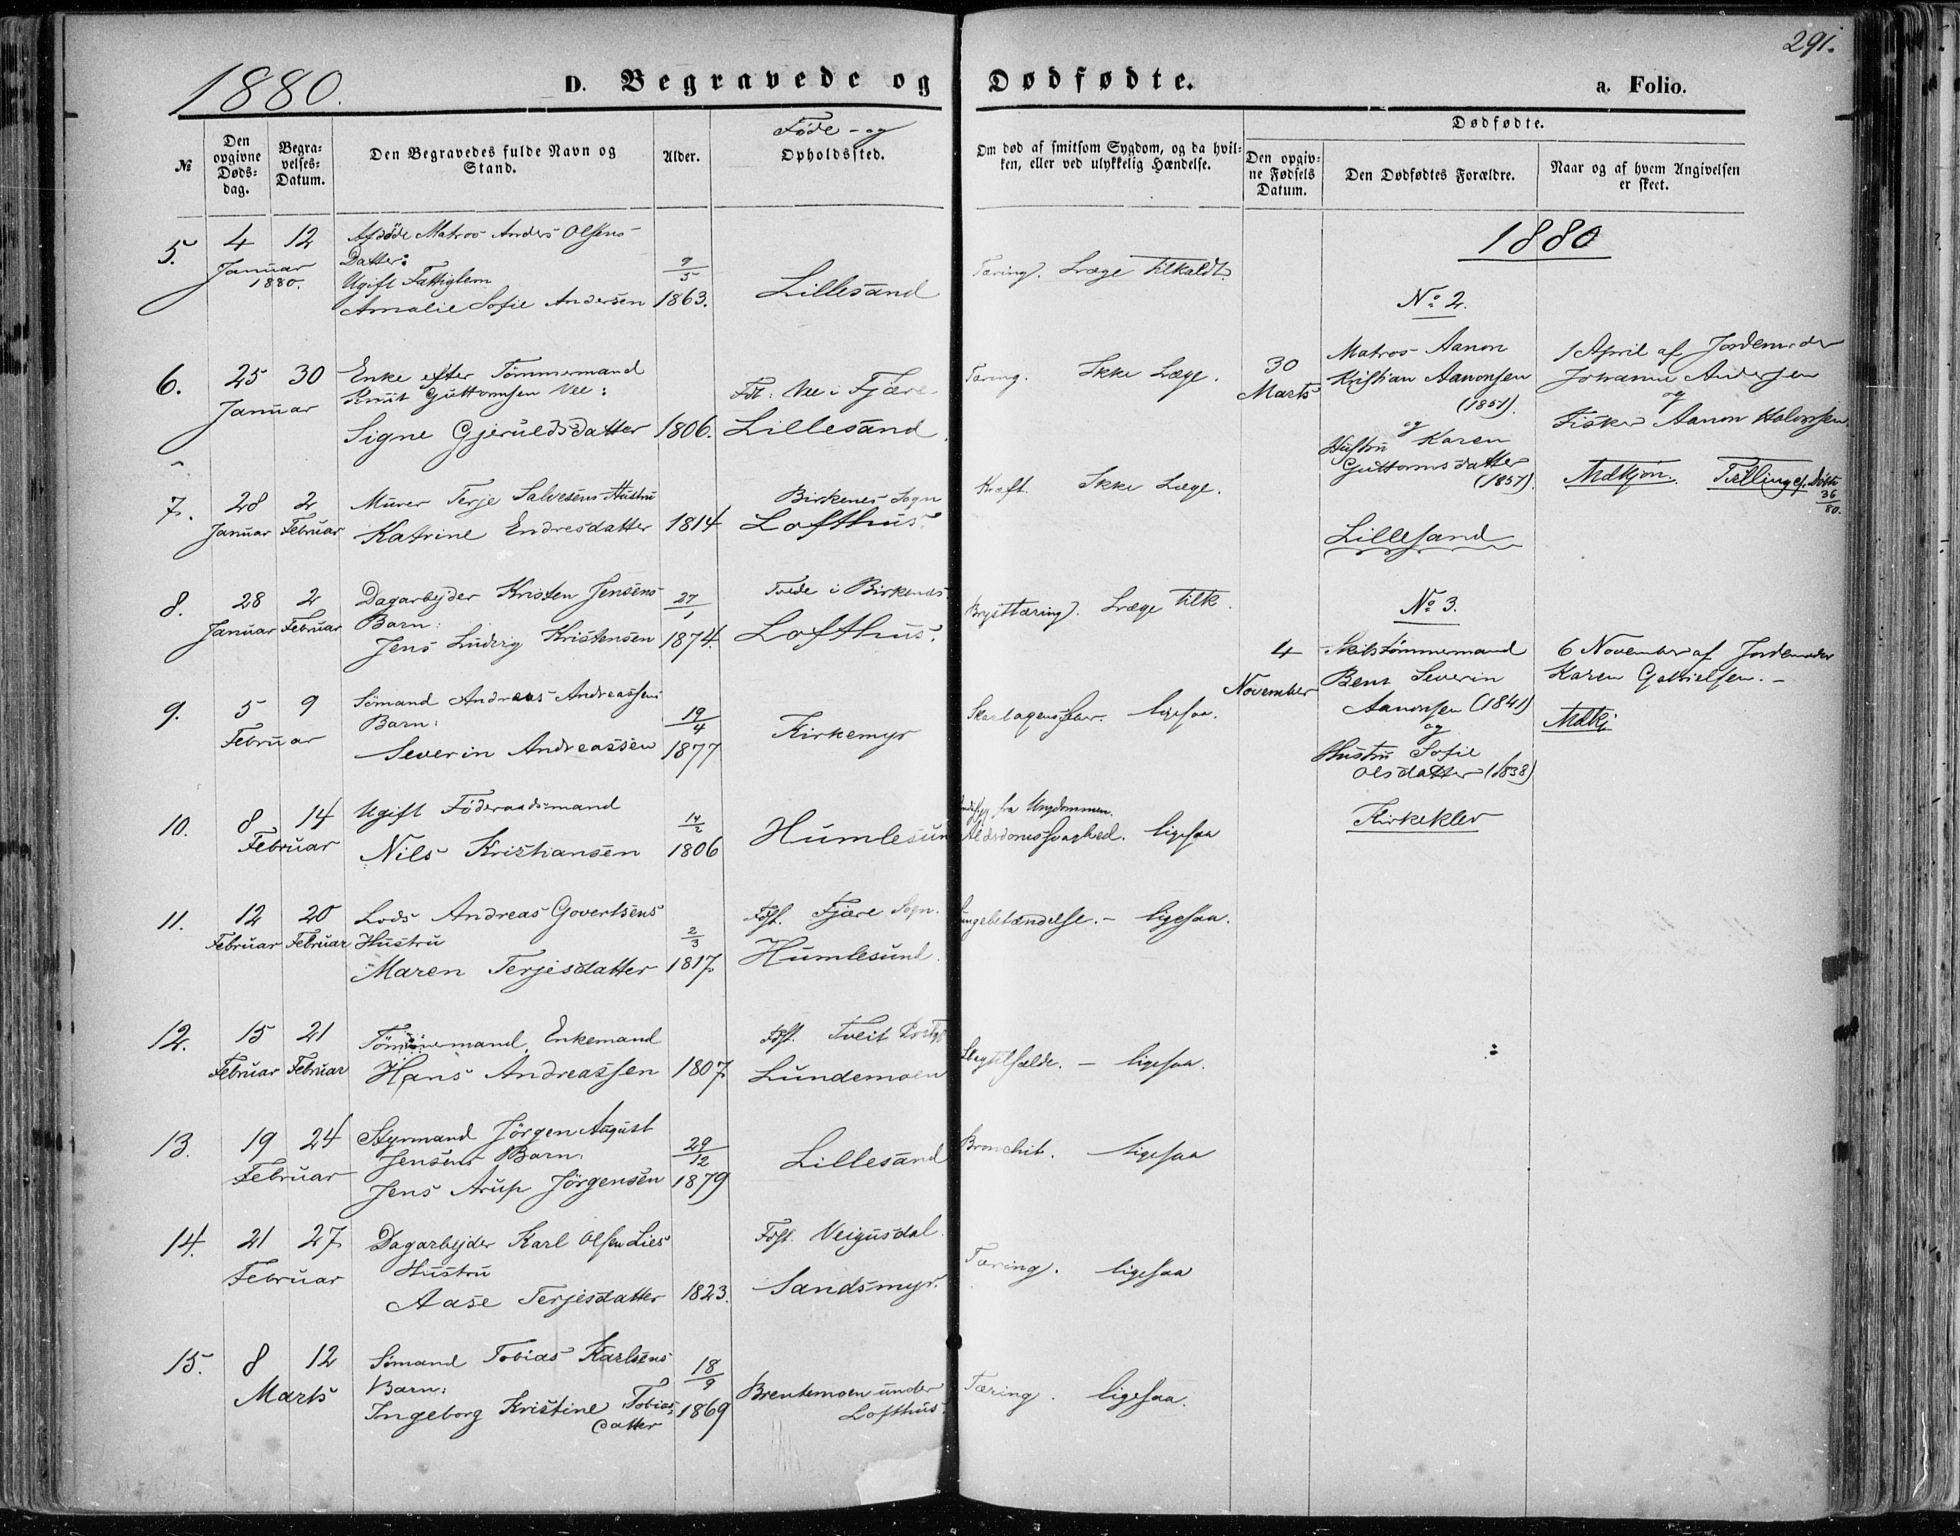 291.
1880.
D. Begravede og Dødfødte.
a. Folio.
№
Den opgivne Døds-dag.
Begra-velses-Datum.
Den Begravedes fulde Navn og Stand.
Alder.
Føde- og
Opholdssted.
Om død af smitsom Sygdom, og da hvil-ken, eller ved ulykkelig Hændelse.
Dødfødte.
Den opgiv-ne Fødsels Datum.
Den Dødfødtes Forældre.
Naar og af hvem Angivelsen er skeet.
5. 4 12 Afdöde Matros Anders Olsens
Januar 1880. Datter:
Ugift Fattiglem 9/5
Amalie Sofie Andersen 1863. Lillesand
Tæring. Læge tilkaldt.
6. 25 30 Enke efter Tömmermand
Januar Knut Guttormsen Vee: Fdt. Vee i Fjære
Signe Gjeruldsdatter 1806. Lillesand.
Tæring. Ikke Læge.
7. 28 2 Murer Terje Salvesens Hustru Birkenes Sogn
Januar Februar Katrine Endresdatter 1814 Lofthus.
Kræft. Ikke Læge.
8. 28 2 Dagarbejder Kristen Jensens 27/1 Tvede i Birkenæs
Januar Februar Barn:
Jens Ludvig Kristensen 1874. Lofthus.
Brysttæring. Læge tilk.
9. 5 9 Sömand Andreas Andreassens
Februar Barn: 19/4
Severin Andreassen 1877 Kirkemyr
Skarlagensfeber. ligesaa.
10. 8 14 Ugift Föderaadsmand 14/2
Februar Nils Kristiansen 1806 Humlesund
fra Ungdommen.
Alderdomssvaghed. ligesaa
11. 12 20 Lods Andreas Govertsens Fdst. Fjære Sogn.
Februar Februar Hustru 2/3
Maren Terjesdatter 1817. Humlesund.
Lungebetændelse. - ligesaa.
12. 15 21 Tömmermand, Enkemand Fdst. Tveit
Februar Februar Hans Andreassen 1807. Lundemoen
Slagtilfælde. - ligesaa.
13. 19 24 Styrmand Jörgen August
Februar Jensens Barn: 29/12
Jens Arup Jörgensen 1879 Lillesand
Bronchit. ligesaa
14. 21 27 Dagarbejder Karl Olsen Lies Fdst. Veigusdal.
Februar Hustru
Aase Terjesdatter 1823. Sandsmyr.
Tæring. ligesaa
15. 8 12 Sömand Tobias Karlsens 18/9
Marts Barn: Brentemoen under
Ingeborg Kristine Tobias- 1869 Lofthus.
datter
Tæring. ligesaa.
1880
No 2.
30 Matros Aanon 1 April af Jordemoder
Marts Kristian Aanonsen Johanne Andersen
(1851). og
og Fisker Aanon Halvorsen
Hustru Karen
Guttormsdatter
(1851). Mdkjøn. Tællingsl.
36
80.
Lillesand
No 3.
4 Skibstømmermand 6 November af Jordemoder
November Bent Severin Karen Gabrielsen. -
Aanonsen (1841)
og Mdkj
Hustru Sofie
Olsdatter (1838)
Kirkeklev